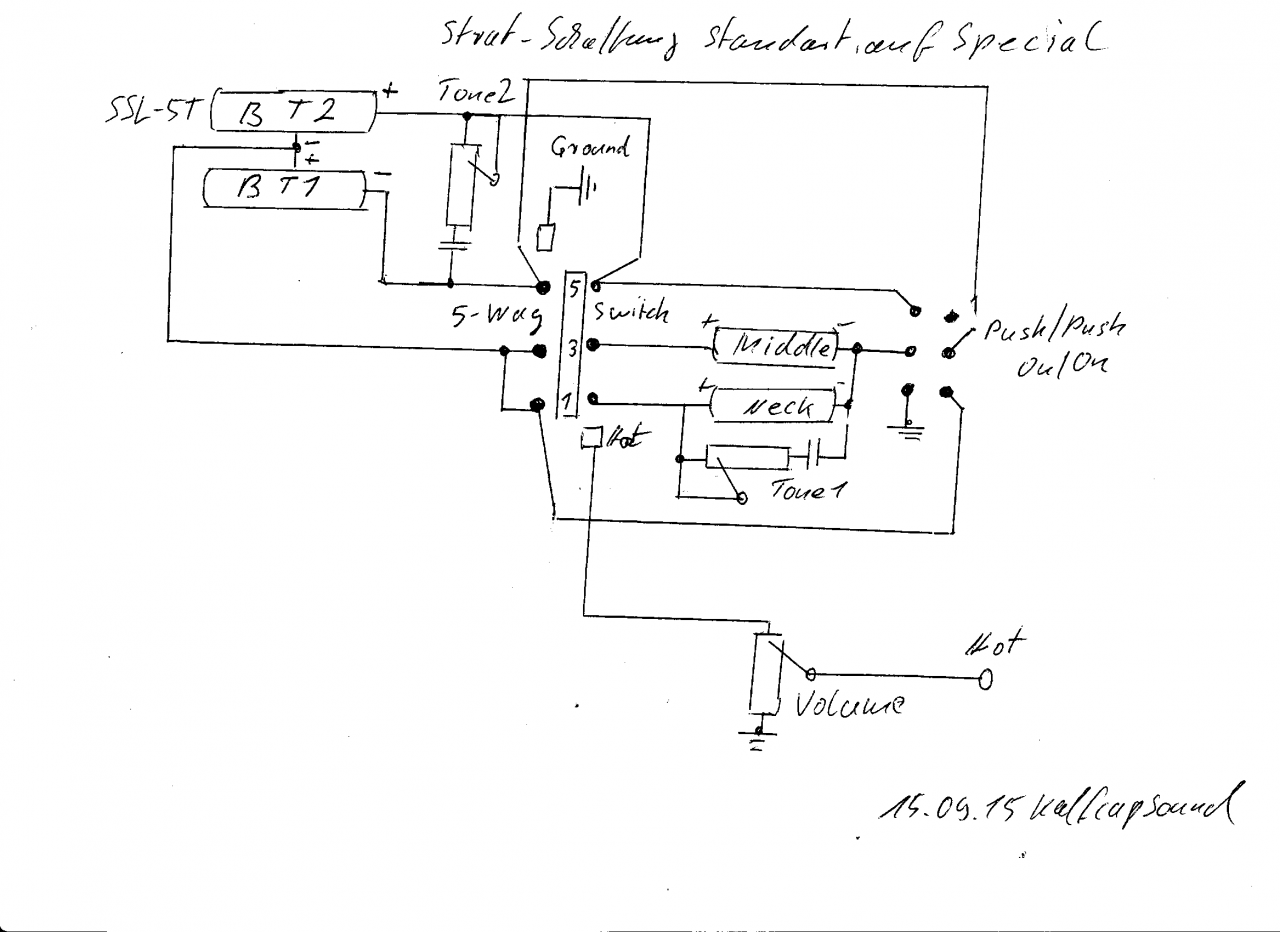 Strat-Schaltung Standart auf Special
SSL-5T
B T2
+
Tone2
-
+
B T1
-
Ground
5
5-Way
Switch
3
1
+
Middle
-
+
Neck
-
Push/Push
On/On
Hot
Tone1
Volume
Hot
15.09.15